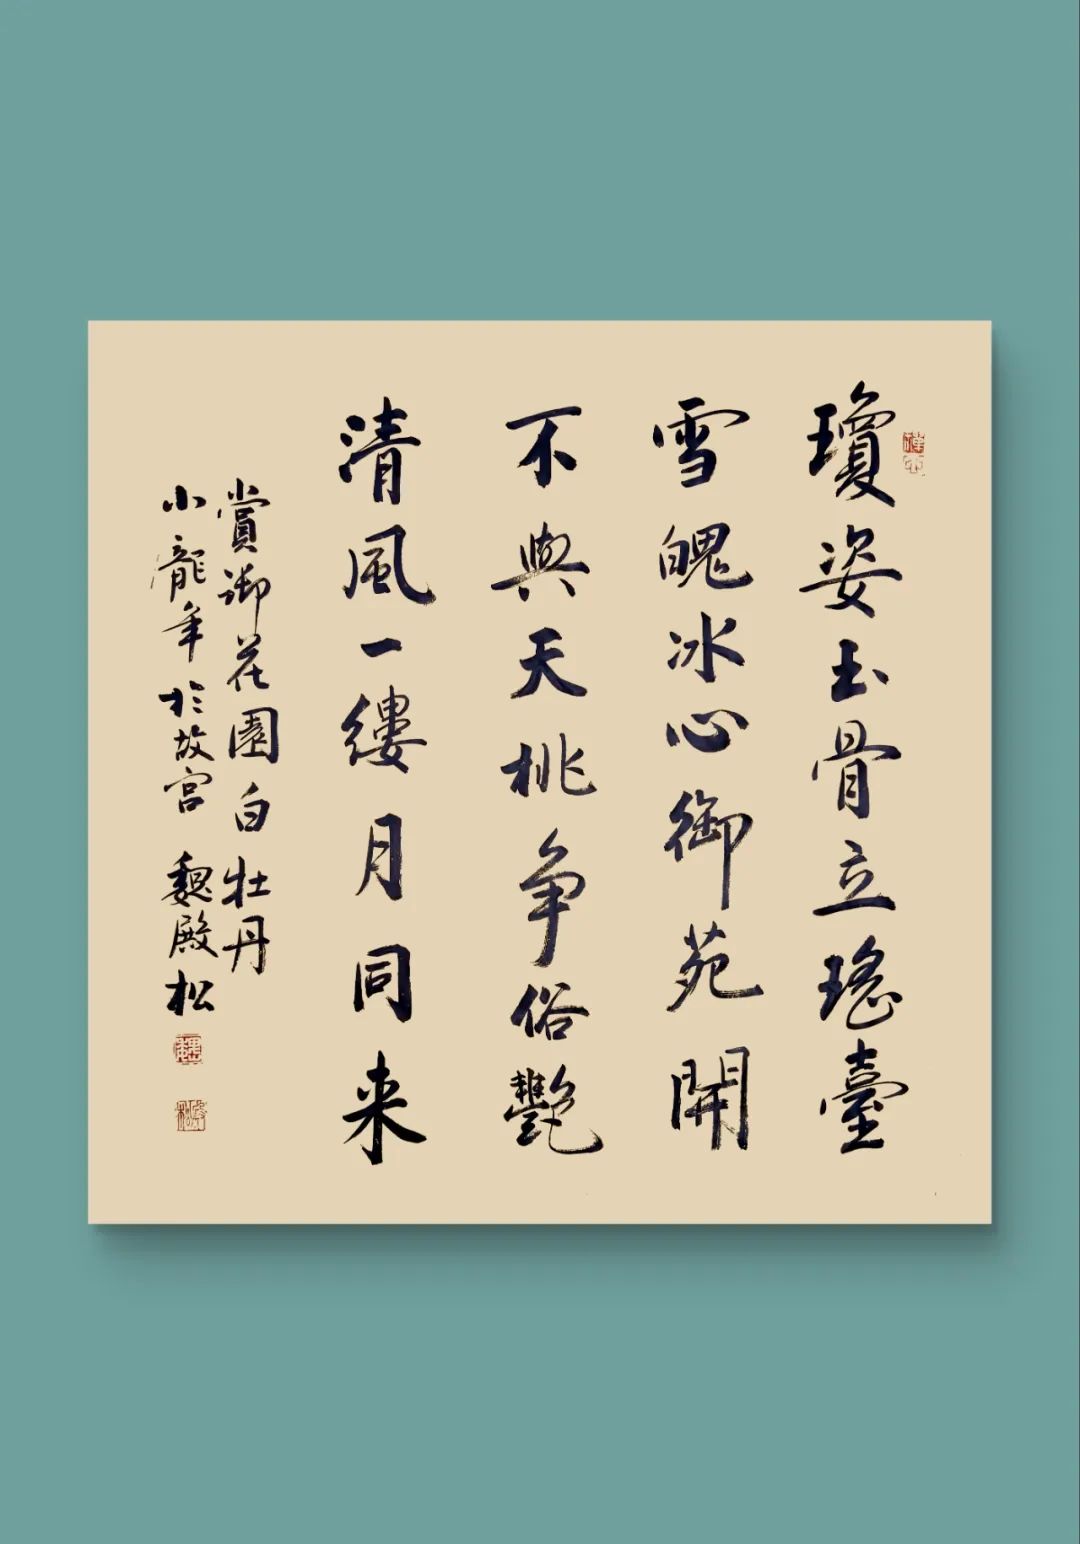 瓊姿玉骨立瑤臺
雪魄冰心御苑開
不與天桃争俗艷
清風一縷月同来
賞御花園白牡丹
小龍年於故宮 魏殿松